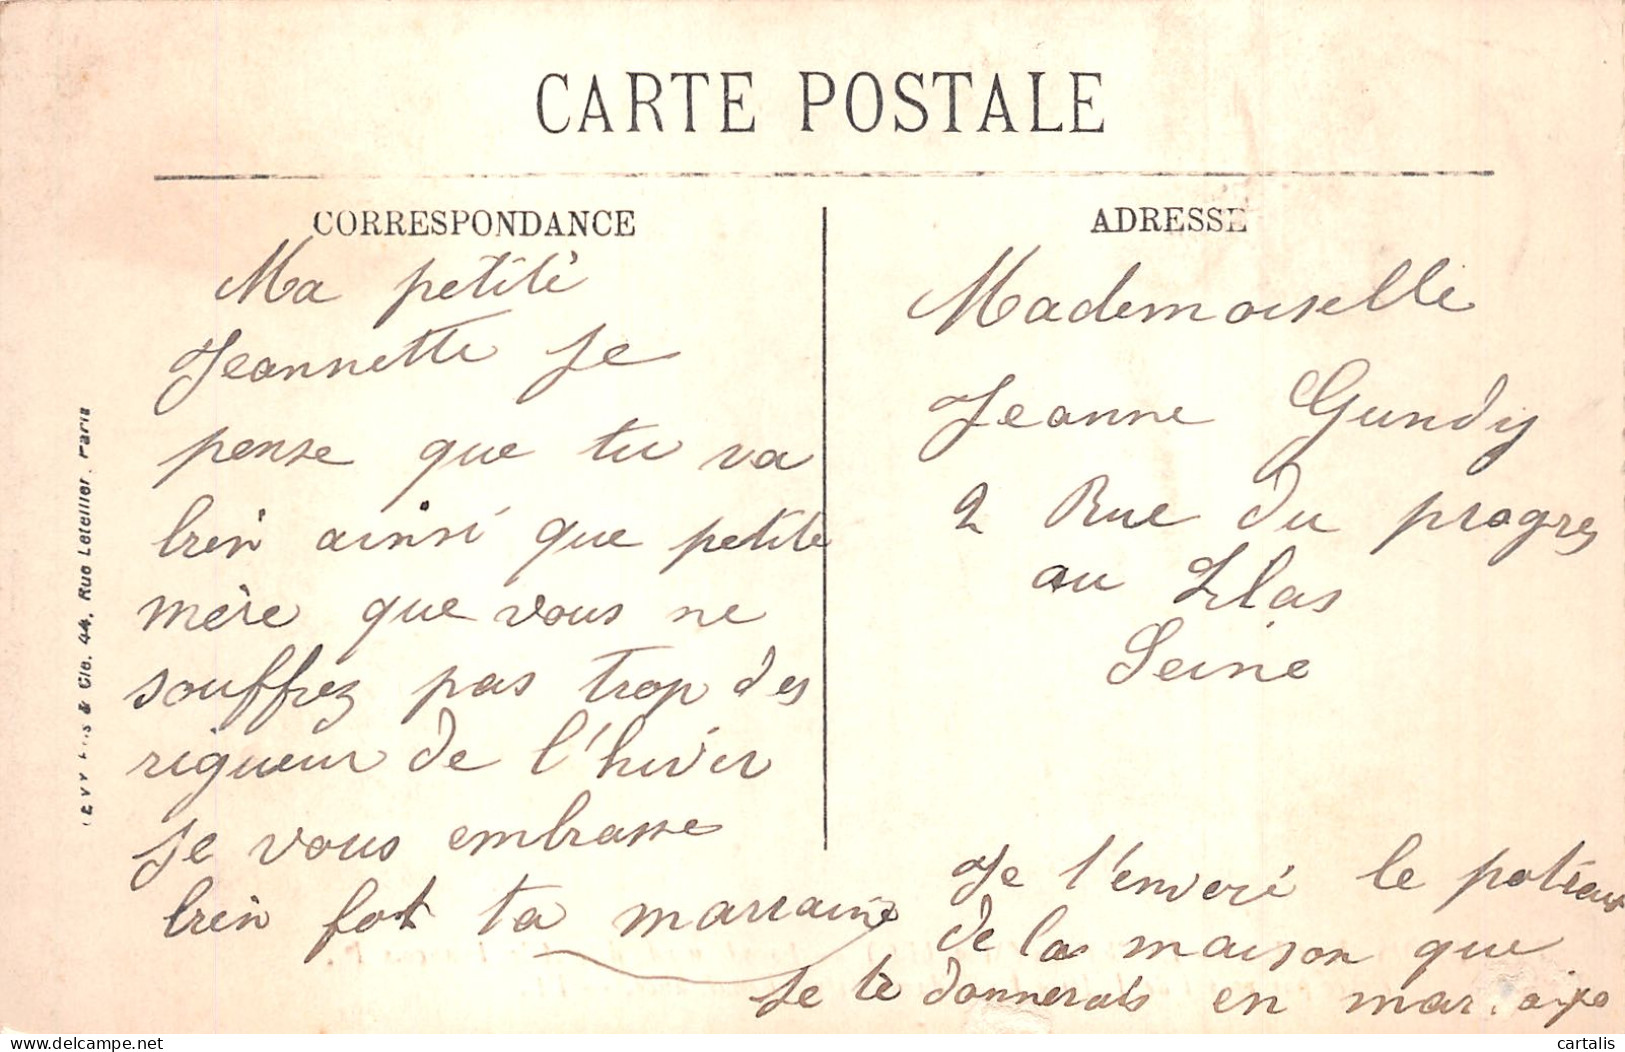 CARTE POSTALE
CORRESPONDANCE
Ma petite
Jeannette je
pense que tu va
bien ainsi que petite
mère que vous ne
souffrez pas trop des
rigueur de l'hiver
je vous embrasse
bien fot ta marraine
ADRESSE
Mademoiselle
Jeanne Gundy
2 Rue du progres
au Lilas
Seine
Je l'envoie le
de la maison que
je te donnerais en
44, Rue Letellier, Paris
cartalis